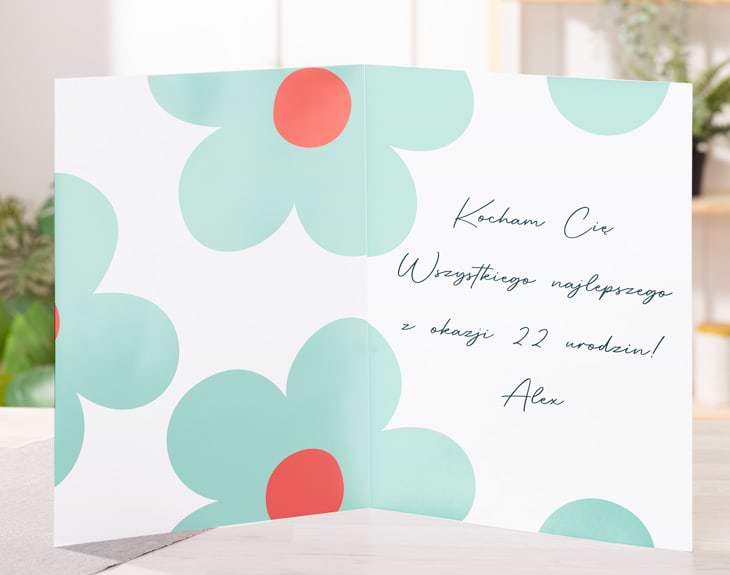 Kocham Cię
Wszystkiego najlepszego
z okazji 22 urodzin!
Alex